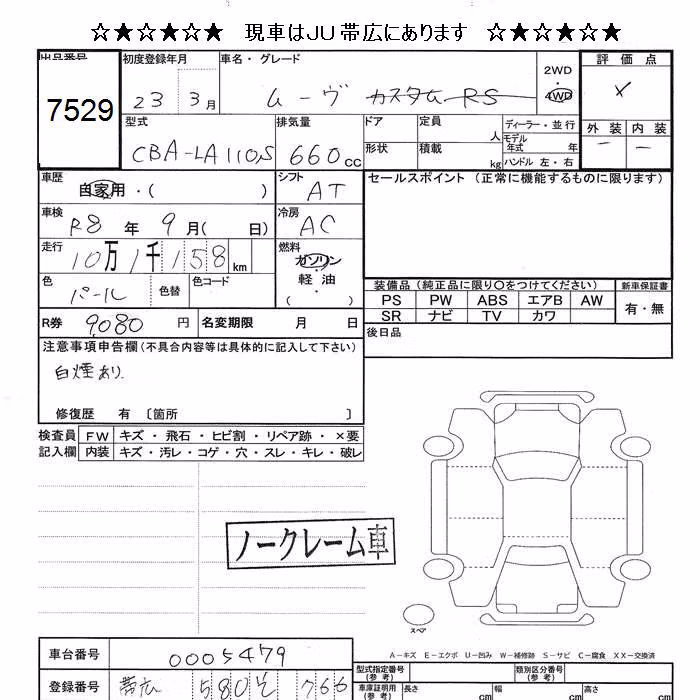 ☆★☆★☆★ 現車はJU帯広にあります ☆★☆★☆★
出品番号 7529
初度登録年月 23 3月
車名・グレード ムーヴ カスタム RS
2WD
4WD
評価点 X
外装 内装
ー ー
型式 CBA-LA110S
排気量 660cc
ドア 定員 人
形状 積載 kg
ディーラー・並行
モデル年式 年
ハンドル 左・右
車歴 自家用・( )
シフト AT
セールスポイント (正常に機能するものに限ります)
車検 R8年 9月( 日)
冷房 AC
走行 10万1千158km
燃料 ガソリン
軽油
( )
色 パール 色替 色コード
装備品(純正品に限り〇をつけてください) 新車保証書
PS PW ABS エアB AW
有・無
SR ナビ TV カワ
R券 9080円 名変期限 月 日
後日品
注意事項申告欄(不具合内容等は具体的に記入して下さい)
白煙あり
修復歴 有 〔箇所 〕
検査員 FW キズ・飛石・ヒビ割・リペア跡・×要
記入欄 内装 キズ・汚レ・コゲ・穴・スレ・キレ・破レ
ノークレーム車
スペア
A-キズ E-エクボ U-凹み W-補修跡 S-サビ C-腐食 XX-交換済
車台番号 0005479
型式指定番号(参考) 類別区分番号(参考)
登録番号 帯広 580 そ 766
車庫証明用(参考) 長さ cm 幅 cm 高さ cm